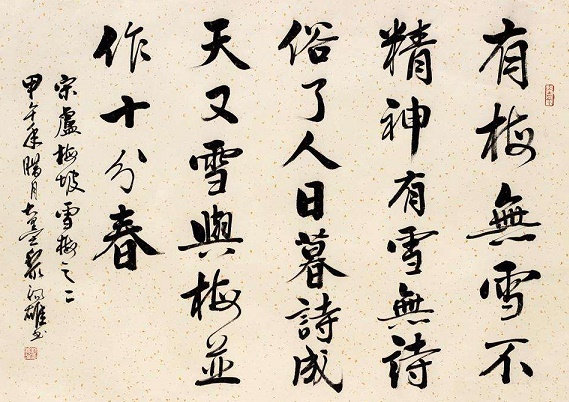 有梅無雪不
精神有雪無詩
俗了人日暮詩成
天又雪與梅並
作十分春
宋盧梅坡雪梅之二
甲午年腊月